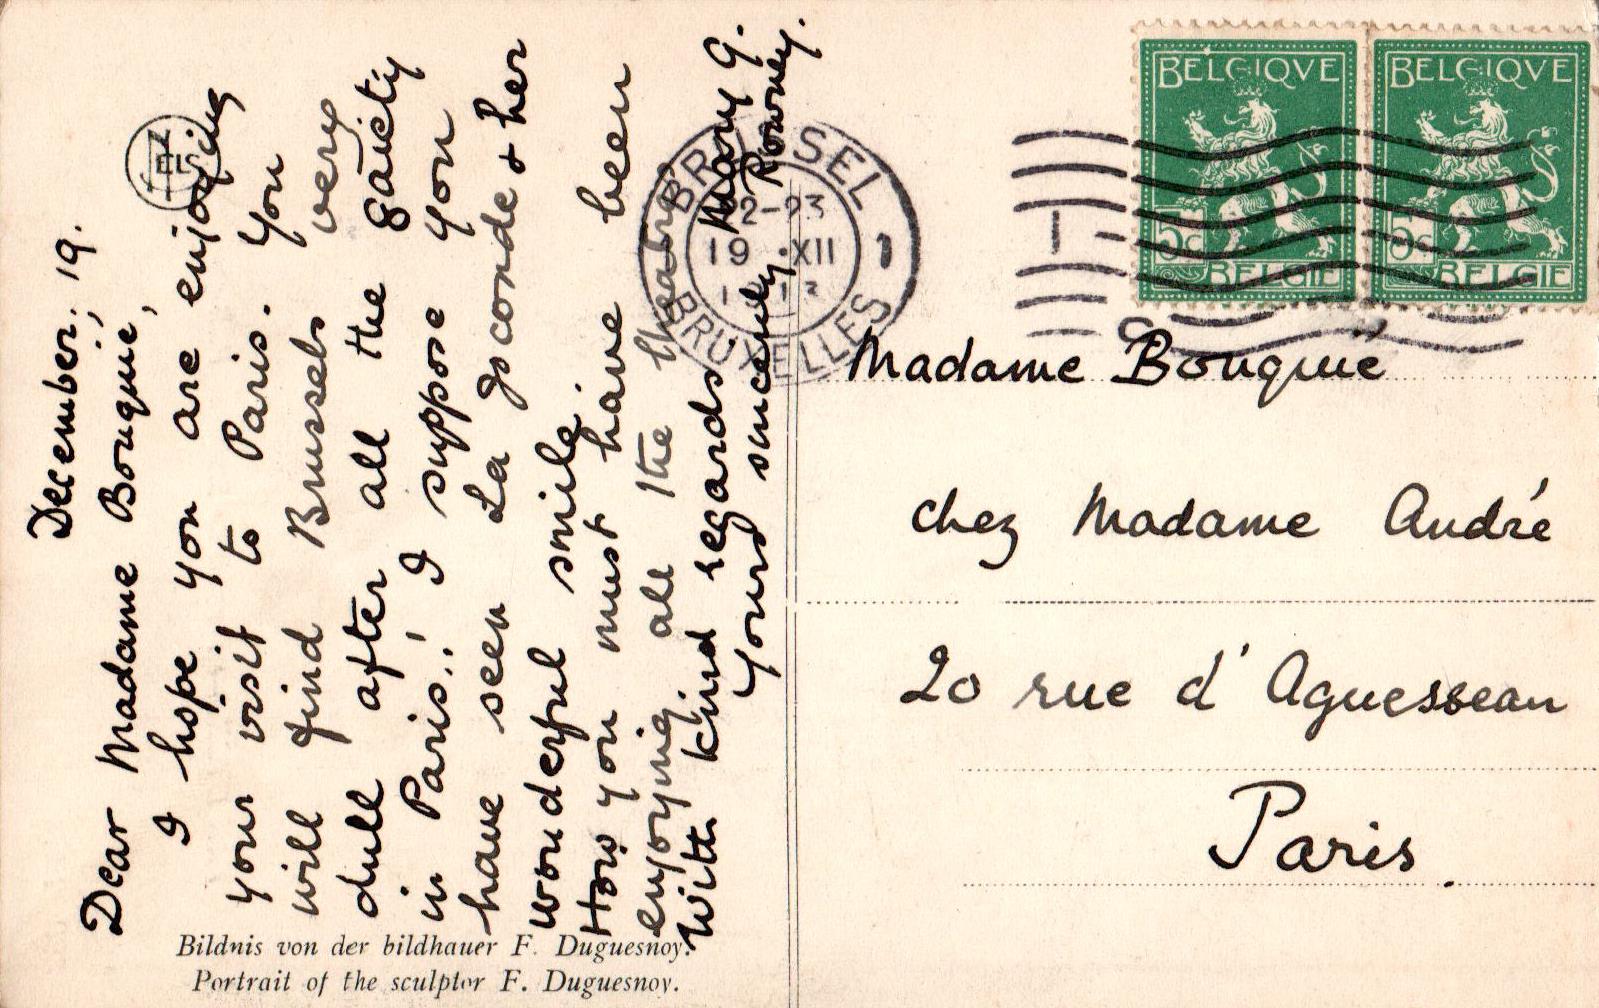 December, 19.
Dear Madame Bouquié,
I hope you are enjoying
your visit to Paris. You
will find Brussels very
dull after all the gaiety
in Paris! I suppose you
have seen La Joconde & her
wonderful smile.
How you must have been
enjoying all the theatres.
With kind regards
Yours sincerely
Mary G.
Rowney.
NELS
Bildnis von der bildhauer F. Duguesnoy.
Portrait of the sculptor F. Duguesnoy.
BRUSSEL 1
22-23
19 XII
BRUXELLES
BELGIQVE
5c
BELGIE
BELGIQVE
5c
BELGIE
Madame Bouquié
chez Madame André
20 rue d'Aguesseau
Paris.